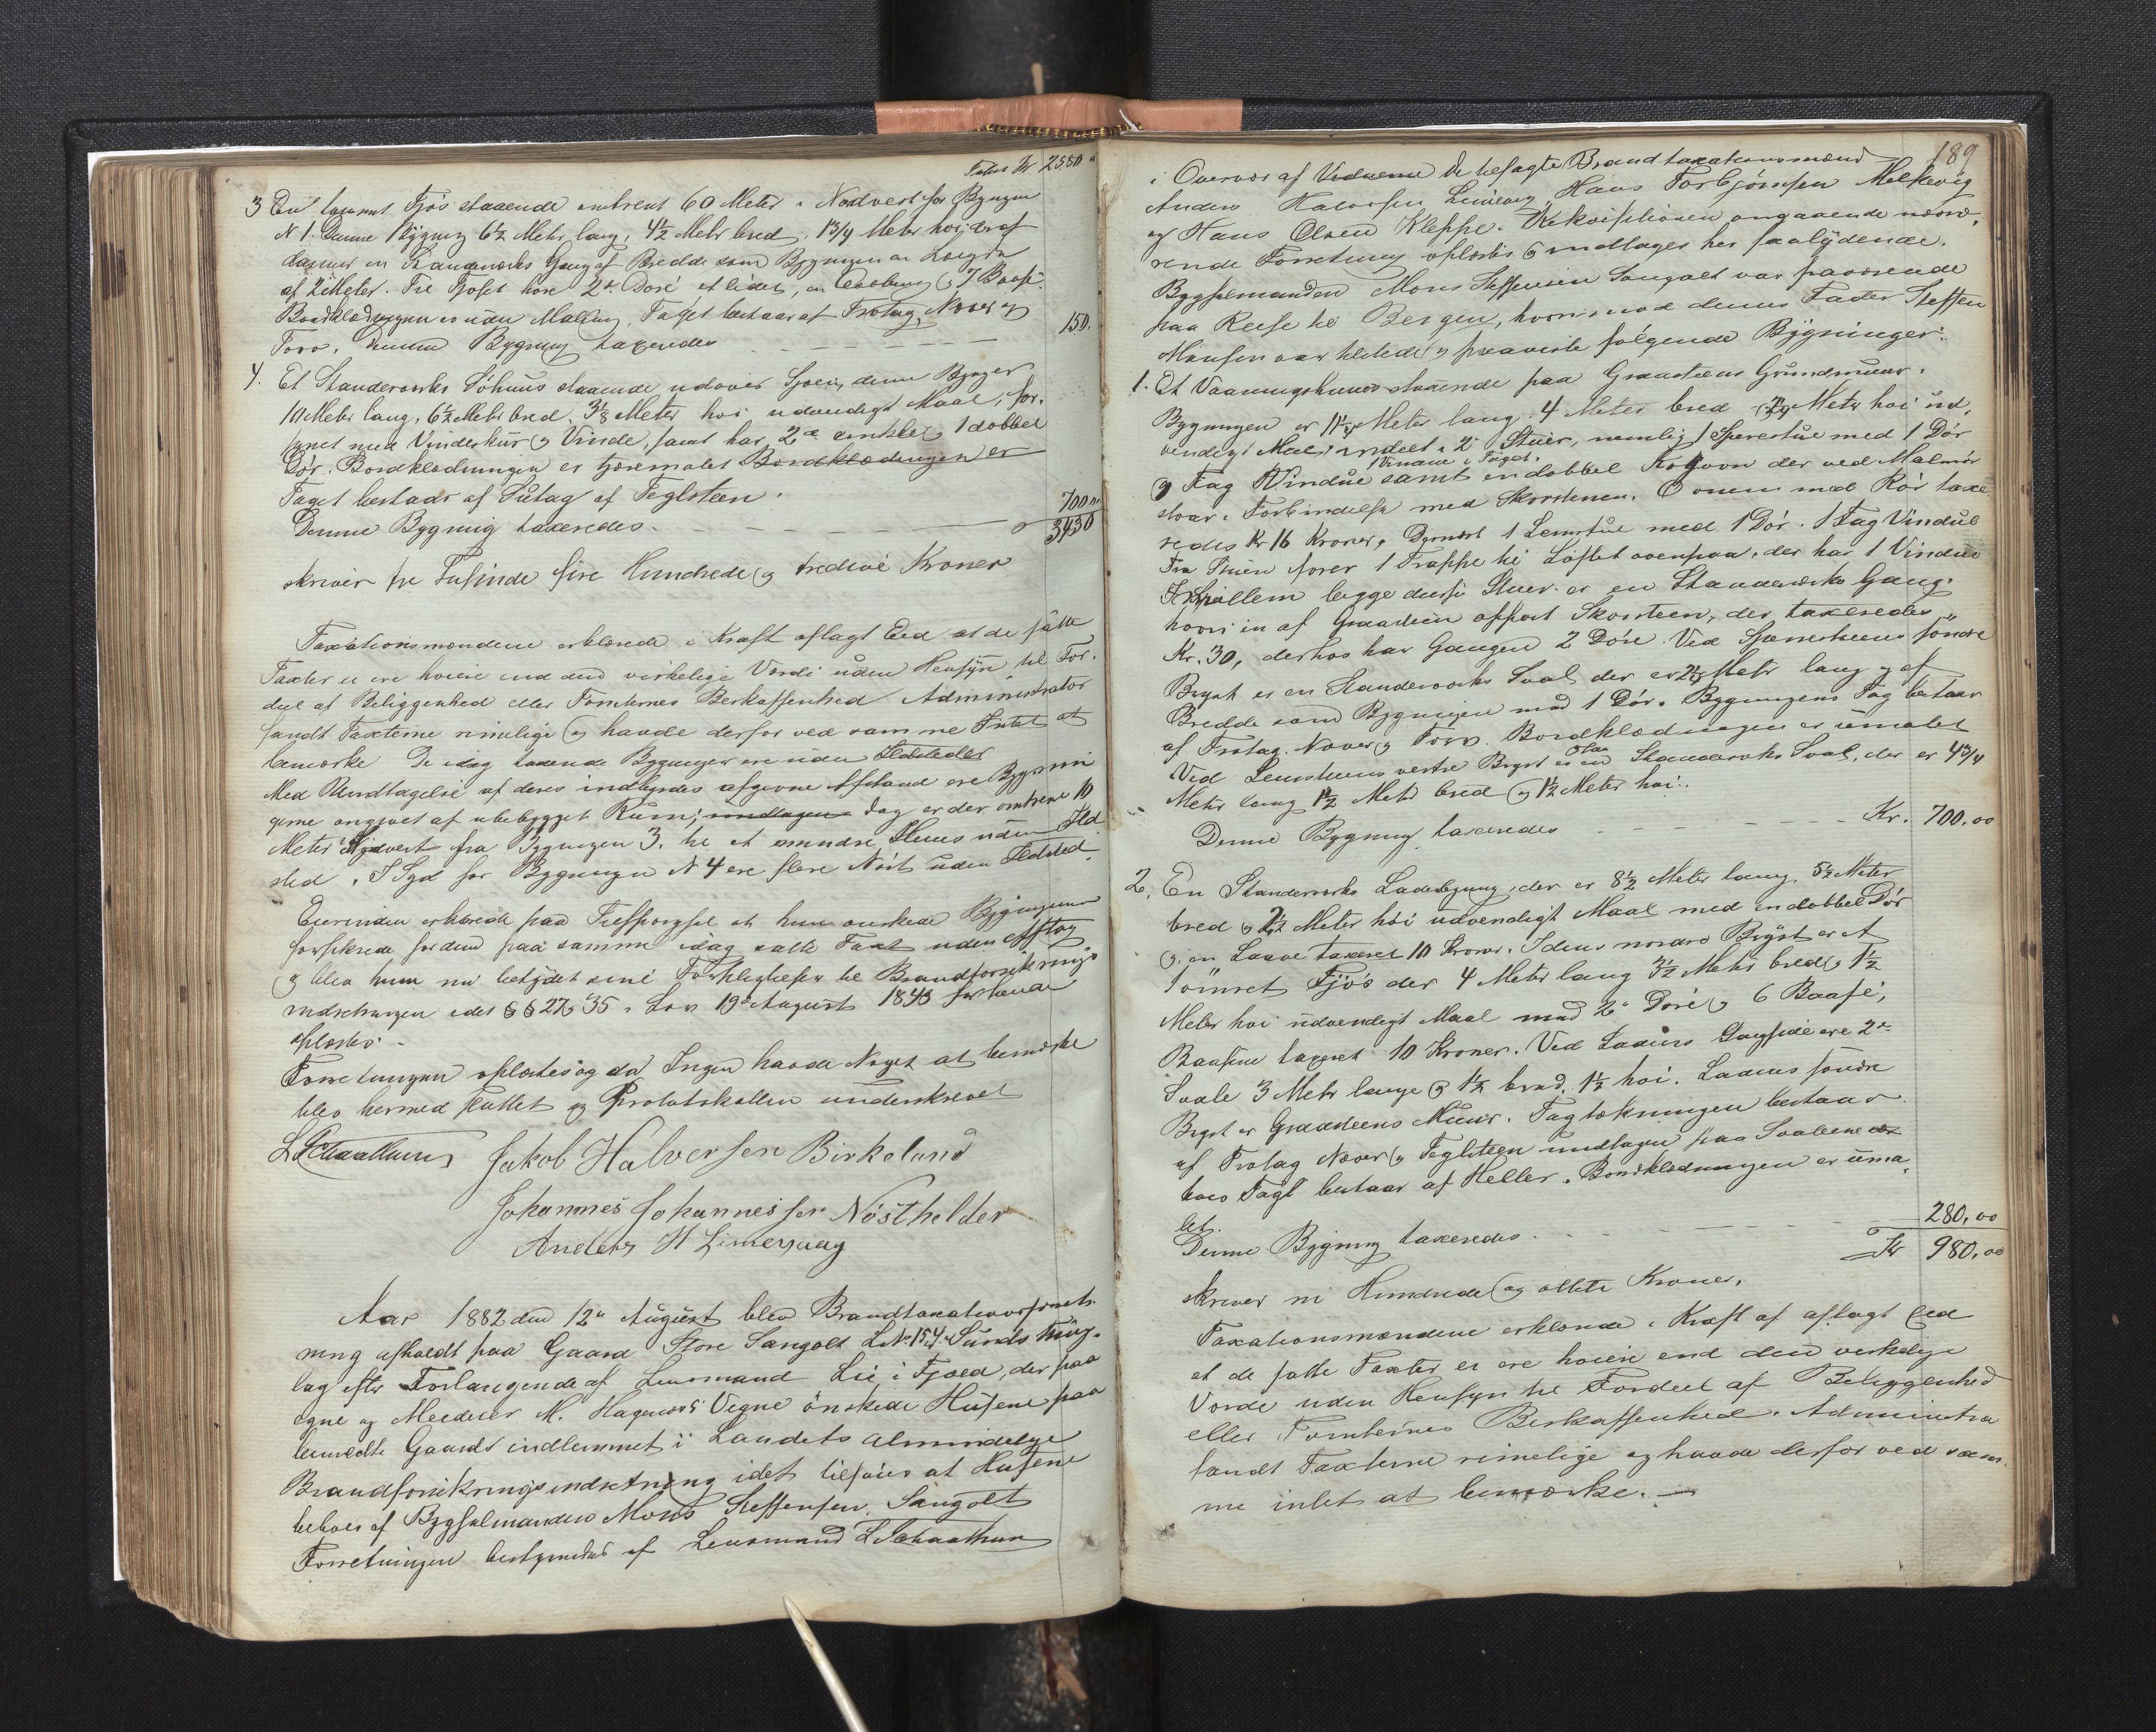 Kr 2580 "
3 En tømret Fjøs staaende omtrent 60 Meter i Nordvest for Bygngen
N 1. Denne Bygning 6½ Meter lang, 4½ Meter bred, 1¾ Meter høi deraf
danner en Standerværks Gang af Bredde som Bygningen en Længde
af 2 Meter. Til Fjøset hører 2de Døre et lidet, og 7 Baase.
Bordklædningen er uden Malling. Taget bestaar af Trotag, Næver og
Torv. Denne Bygning taxeredes 150.
4. Et Standerværks Søhuus staaende udover Sjøen, denne Bygnng er
10 Meter lang, 6½ Meter bred, 3⅛ Meter høi udvendigt Maal, for-
synet med Vindeskur og Vinde, samt har 2de enkle og 1 dobbel
Dør. Bordklædningen er tjæremalet Bordklædningen er
Taget bestaar af Sutag af Teglsteen.
Denne Bygning taxeredes. 700 "
3430
skriver tre Tusinde fire Hundrede og tredive Kroner
Taxationsmændene erklærede i Kraft aflagt Eed at de satte
Taxter ei ere høiere end den virkelige Værdi uden Hensyn til For-
deel af Beliggenhed eller Tomternes Beskaffenhed Administrator
fandt Taxterne rimelige og havde derfor ved samme Intet at
bemærke De idag taxerede Bygninger ere uden Ildsteder
Med Undtagelse af deres indbyrdes afgivne Afstand ere Bygnin
gerne omgivet af ubebygget Rum; undtagen dog er der omtrent 10
Meter Nordvest fra Bygningen 3. til et mindre Huus uden Ild-
sted. I Syd for Bygningen N 4 ere flere Nöst uden Ildsted.
Eierinden erklærede paa Tilspørgsel at hun ønskede Bygningerne
forsikrede for den paa samme idag satte Taxt uden Afslag
og blev hun nu betydet sine Forpligtelser til Brandforsikrings-
indretningen idet §§ 27 & 35 i Lov 19de August 1845 forhende
oplæstes. -
Forretningen oplæstes og da Ingen havde Noget at bemærke
blev hermed sluttet og Protokollen underskrevet
L Schaathun Jakob Halversen Birkeland
Johannes Johannessen Nösthelder
Anders H Limevaag
Aar 1882 den 12te August blev Brandtaxationsforret-
ning afholdt paa Gaard Store Sangolt LNo 154 i Sunds Thing-
lag efter Forlangende af Lensmand Lie i Fjeld, der paa
egne og Medeier M. Hagenæs's Vegne önskede Husene paa
bemeldte Gaard indlemmet i Landets almindelige
Brandforsikringsindretning idet tilføies at Husene
beboes af Bygselmanden Mons Steffensen Sangolt
Forretningen bestyredes af Lensmand L Schaathun
189
i Overvær af Vidnerne de befagte Brandtaxationsmænd
Anders Halvorsen Limevaag, Hans Torbjørnsen Melkevig
og Hans Olsen Kleppe. Rekvisitionen angaaende nærvæ-
rende Forretning oplæstes & indtages her saalydende.
Bygselmanden Mons Steffensen Sangolt var fraværende
paa Reise til Bergen, hvorimod dennes Fader Steffen
Monsen var tilstede og paaviste følgende Bygninger:
1. Et Vaaningshuus staaende paa Graasteens Grundmuur.
Bygningen er 11¼ Meter lang 4 Meter bred og 2¼ Meter høi ud-
vendigt Maal, inddeelt i 2de Stuer, nemlig 1 Sperestue med 1 Dör
1 Vindue i Taget.
og Fag Vindue samt en dobbel Kogovn der ved Malmrör
staar i Forbindelse med Skorstenen. Ovnen med Rör taxe
redes Kr 16 Kroner, Dernæst 1 Lemstue med 1 Dör. 1 Fag Vindue
Fra Stuen fører 1 Trappe til Loftet ovenpaa, der har 1 Vindue
Imellem begge disse Stuer er en Standerværks Gang.
hvori in af Graasteen opført Skorsteen, der taxeredes
Kr. 30, derhos har Gangen 2 Døre. Ved Sperestuens søndre
Bryst er en Standerværks Sval der er 2¼ Meter lang og af
Bredde som Bygningen med 1 Dör. Bygningens Tag bestaar
af Trotag, Næver og Torv. Bordklædningen er umalet
Ved Lemstuens vestre Bryst er en Standerværks Sval, der er 4¾
Meter lang 1½ Meter bred og 1½ Meter høi.
Denne Bygning taxeredes Kr. 700.00
2. En Standerværks Ladebygning, der er 8½ Meter lang, 5½ Meter
bred og 2½ Meter høi udvendigt Maal med en dobbel Dör
og en Laave taxeret 10 Kroner. I dens nordre Bryst er et
Tömret Fjös der 4 Meter lang 3½ Meter bred og 1½
Meter høi udvendigt Maal med 2de Døre og 6 Baase,
Baasene taxeret 10 Kroner. Ved Ladens Langside ere 2de
Svale 3 Meter lange og 1½ bred, 1½ høi. Ladens søndre
Bryst er Graasteens Muur. Tagtækningen bestaar
af Trotag Næver og Teglsteen undtagen paa Svalene er
hvis Tag bestaar af Heller. Bordklædningen er uma-
let.
Denne Bygning taxeredes. 280,00
Kr 980,00
skriver ni Hundrede og otteti Kroner.
Taxationsmændene erklærede i Kraft af aflagt Eed
at de satte Taxter ei ere høiere end den virkelige
Værdi uden Hensyn til Fordeel af Beliggenhed
eller Tomternes Beskaffenhed. Administra
fandt Taxterne rimelige og havde derfor ved sam-
me intet at bemærke. —